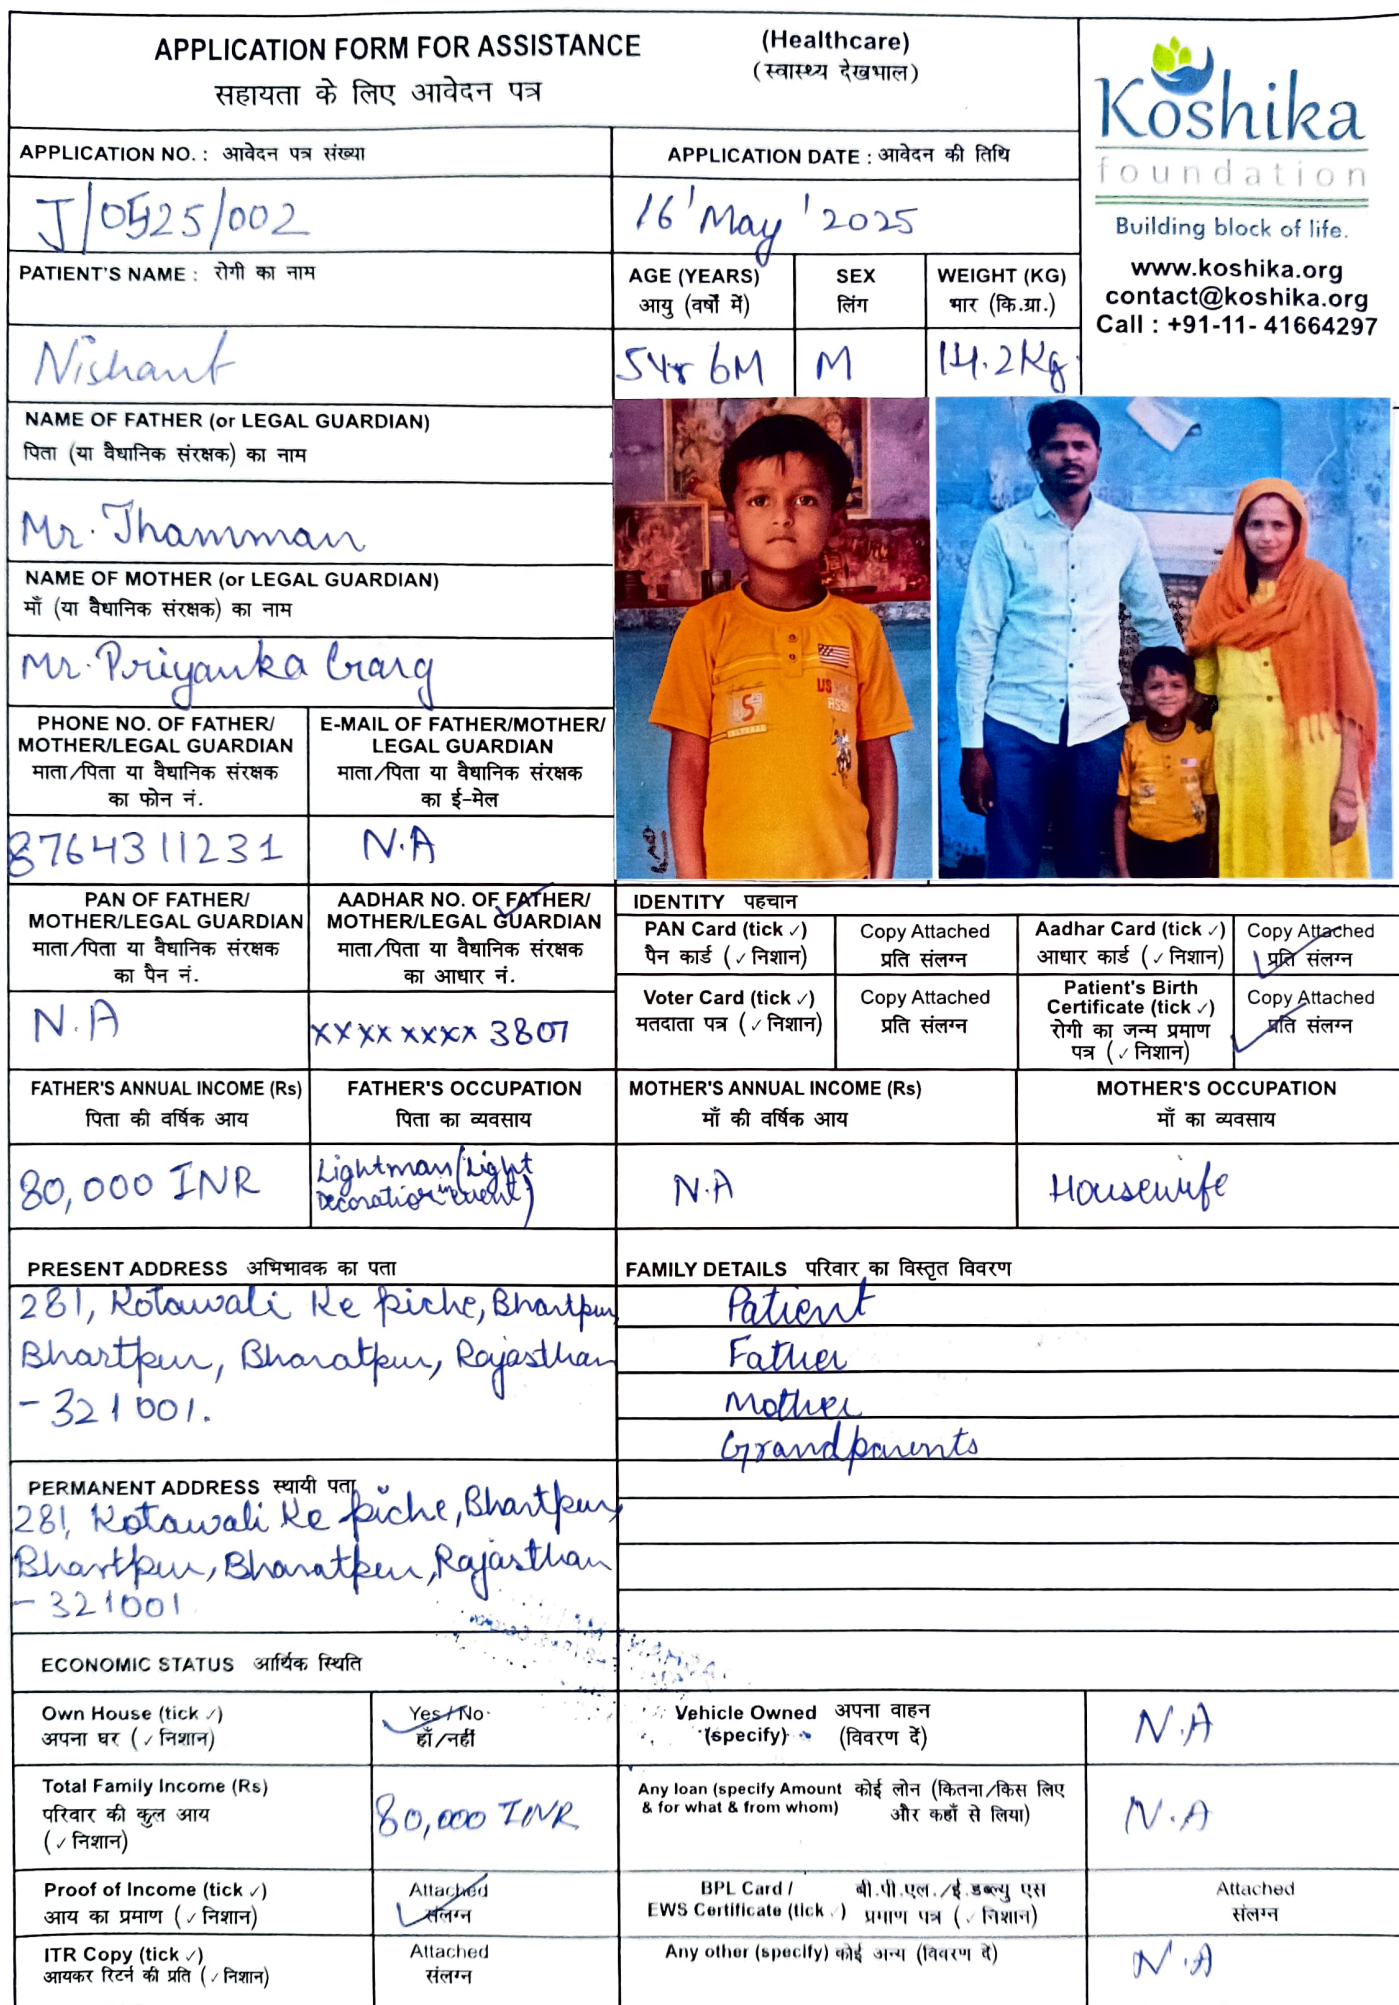 APPLICATION FORM FOR ASSISTANCE (Healthcare)
सहायता के लिए आवेदन पत्र (स्वास्थ्य देखभाल)
Koshika
foundation
Building block of life.
www.koshika.org
contact@koshika.org
Call : +91-11- 41664297
APPLICATION NO. : आवेदन पत्र संख्या
APPLICATION DATE : आवेदन की तिथि
J/0525/002
16'May'2025
PATIENT'S NAME : रोगी का नाम
AGE (YEARS)
आयु (वर्षों में)
SEX
लिंग
WEIGHT (KG)
भार (कि.ग्रा.)
Nishant
5Yr 6M
M
14.2Kg
NAME OF FATHER (or LEGAL GUARDIAN)
पिता (या वैधानिक संरक्षक) का नाम
Mr. Thamman
NAME OF MOTHER (or LEGAL GUARDIAN)
माँ (या वैधानिक संरक्षक) का नाम
Mr. Priyanka Garg
US
5
PHONE NO. OF FATHER/
MOTHER/LEGAL GUARDIAN
माता/पिता या वैधानिक संरक्षक
का फोन नं.
E-MAIL OF FATHER/MOTHER/
LEGAL GUARDIAN
माता/पिता या वैधानिक संरक्षक
का ई-मेल
8764311231
N.A
PAN OF FATHER/
MOTHER/LEGAL GUARDIAN
माता/पिता या वैधानिक संरक्षक
का पैन नं.
AADHAR NO. OF FATHER/
MOTHER/LEGAL GUARDIAN
माता/पिता या वैधानिक संरक्षक
का आधार नं.
N.A
xxxx xxxx 3807
IDENTITY पहचान
PAN Card (tick ✓)
पैन कार्ड (✓ निशान)
Copy Attached
प्रति संलग्न
Aadhar Card (tick ✓)
आधार कार्ड (✓ निशान)
Copy Attached
प्रति संलग्न
Voter Card (tick ✓)
मतदाता पत्र (✓ निशान)
Copy Attached
प्रति संलग्न
Patient's Birth
Certificate (tick ✓)
रोगी का जन्म प्रमाण
पत्र (✓ निशान)
Copy Attached
प्रति संलग्न
FATHER'S ANNUAL INCOME (Rs)
पिता की वार्षिक आय
FATHER'S OCCUPATION
पिता का व्यवसाय
MOTHER'S ANNUAL INCOME (Rs)
माँ की वार्षिक आय
MOTHER'S OCCUPATION
माँ का व्यवसाय
80,000 INR
Lightman (Light
Decoration in event)
N.A
Housewife
PRESENT ADDRESS अभिभावक का पता
281, Kotawali Ke piche, Bhartpur
Bhartpur, Bharatpur, Rajasthan
- 321001.
FAMILY DETAILS परिवार का विस्तृत विवरण
Patient
Father
Mother
Grandparents
PERMANENT ADDRESS स्थायी पता
281, Kotawali Ke piche, Bhartpur,
Bhartpur, Bharatpur, Rajasthan
- 321001
ECONOMIC STATUS आर्थिक स्थिति
Own House (tick ✓)
अपना घर (✓ निशान)
Yes / No
हाँ/नहीं
Vehicle Owned अपना वाहन
(specify) (विवरण दें)
N.A
Total Family Income (Rs)
परिवार की कुल आय
(✓ निशान)
80,000 INR
Any loan (specify Amount कोई लोन (कितना/किस लिए
& for what & from whom) और कहाँ से लिया)
N.A
Proof of Income (tick ✓)
आय का प्रमाण (✓ निशान)
Attached
संलग्न
BPL Card / बी.पी.एल./ई.डब्ल्यु एस
EWS Certificate (tick ✓) प्रमाण पत्र (✓ निशान)
Attached
संलग्न
ITR Copy (tick ✓)
आयकर रिटर्न की प्रति (✓ निशान)
Attached
संलग्न
Any other (specify) कोई अन्य (विवरण दें)
N.A